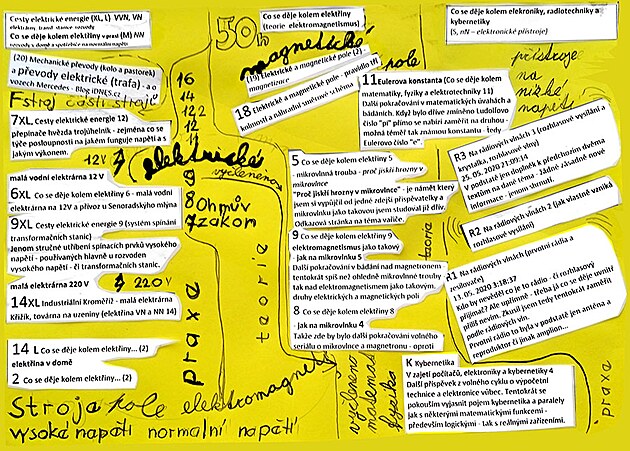 Cesty elektrické energie (XL, L) VVN, VN
elektrárny, tranf. stanice, rozvody
Co se děje kolem elektřiny v praxi (M) NN
rozvody k domu a spotřebiče na normální napětí
(20) Mechanické převody (kolo a pastorek)
a převody elektrické (trafa) - a o
vozech Mercedes - Blog iDNES.cz
Fstroj části strojů
7XL, Cesty elektrické energie 12)
přepínače hvězda trojúhelník - zejména co se
týče posloupnosti na jakém funguje napětí a s
jakým výkonem.
12V
malá vodní elektrárna 12 V
6XL Co se děje kolem elektřiny 6 - malá vodní
elektrárna na 12V a přívoz u Senoradského mlýna
9XL Cesty elektrické energie 9 (systém spínání
transformačních stanic)
Jenom stručné utříbení spínacích prvků vysokého
napětí - používaných hlavně u rozvoden
vysokého napětí - či transformačních stanic.
malá elektrárna 220 V
220V
14XL Industriální Kroměříž - malá elektrárna
Křižík, továrna na uzeniny (elektřina VN a NN 14)
14 L Co se děje kolem elektřiny... (2)
elektřina v domě
2 Co se děje kolem elektřiny... (2)
Stroja pole elektromagnetické
vysoké napětí normalní napětí
50h
16
14
12,2
12
11
elektrické
vyčleneno
9
8 Ohmův
7 zákon
praxe
teorie
Co se děje kolem elektřiny
(teorie elektromagnetismu)
magnetické
pole
(19) Elektrické a magnetické pole (2)
- magnetizace
18 Elektrické a magnetické pole - pravidlo tří
kolmostí a náhradní směrové schéma
11 Eulerova konstanta (Co se děje kolem
matematiky, fyziky a elektrotechniky 11)
Další pokračování v matematických úvahách a
bádáních. Když bylo dříve zmíněno Ludolfovo
číslo "pí" přímo se nabízí zaměřit na druhou-
možná téměř tak známou konstantu - tedy
Eulerovo číslo "e".
5 Co se děje kolem elektřiny 5
- mikrovlnná trouba - proč jiskří hrozny v
mikrovlnce
"Proč jiskří hrozny v mikrovlnce" - je námět který
jsem si vypůjčil od jedné zdejší přispěvatelky a
mikrovlnku jako takovou jsem studoval již dřív.
Odkazová stránka na téma valíče.
9 Co se děje kolem elektřiny 9
elektromagnetismus jako takový
- jak na mikrovlnku 5
Další pokračování v bádání nad magnetronem
tentokrát spíš než ohledně mikrovlnné trouby
tak nad elektromagnetismem jako takovým,
druhy elektrických a magnetických polí
8 Co se děje kolem elektřiny 8
- jak na mikrovlnku 4
Takže zde by bylo další pokračování volného
seriálu o mikrovlnce a magnetronu - oproti
vyčleneno
matemat
fyzika
teorie
Co se děje kolem elekroniky, radiotechniky a
kybernetiky
(S, nN – elektronické přístroje)
přístroje
na
nízké
napětí
R3 Na rádiových vlnách 3 (rozhlasové vysílání a
krystalka, rozhlasové vlny)
25. 05. 2020 21:09:14
V podstatě jen doplněk k předchozím dvěma
textům na dané téma - žádné zásadně nové
informace - jenom shrnutí.
R2 Na rádiových vlnách 2 (jak vlastně vzniká
rozhlasové vysílání)
R1 Na rádiových vlnách (prvotní rádia a
zesilovače)
13. 05. 2020 3:18:37
Kdo by nevěděl co je to rádio - či rozhlasový
přijímač? Ale upřímně - třeba já co se děje uvnitř
příliš nevím. Zkusil jsem tedy tentokrát zaměřit
podle rádiových vln.
Prvotní rádio to byla v podstatě jen anténa a
reproduktor či jinak amplion...
K Kybernetika
V zajetí počítačů, elektroniky a kybernetiky 4
Další příspěvek z volného cyklu o výpočetní
technice a elektronice vůbec. Tentokrát se
pokouším vyjasnit pojem kybernetika a paralely
jak s některými matematickými funkcemi -
především logickými - tak s reálnými zařízeními.
praxe